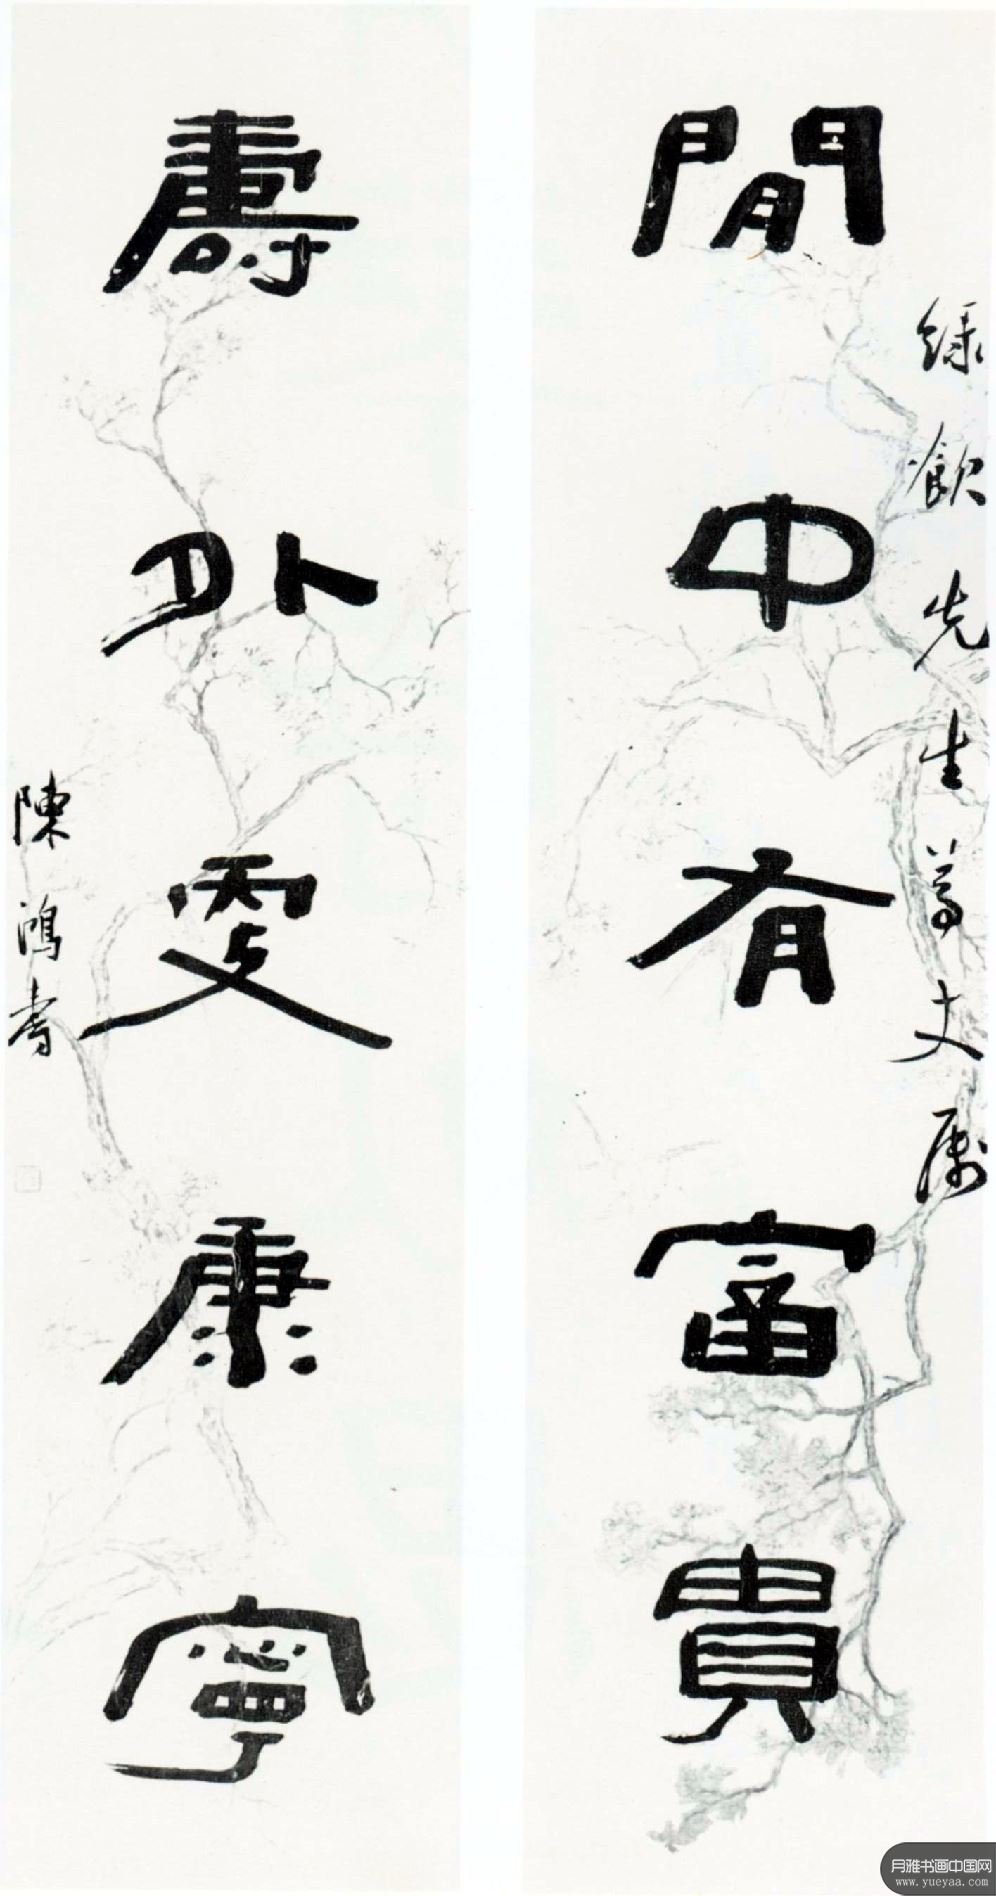 綠飲先生尊丈属
閒中有富貴
壽外更康寧
陳鴻壽
月雅书画中国网
www.yueyaa.com